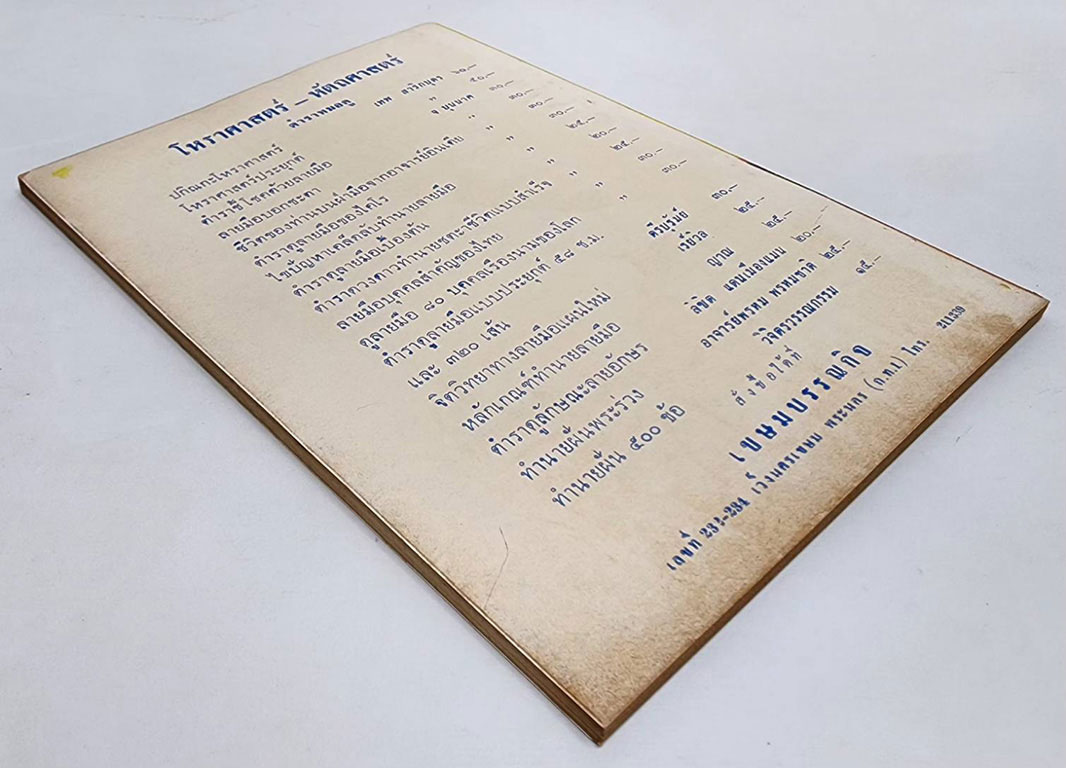 โหราศาสตร์ – หัตถศาสตร์
ตำราหมอดู เทพ สาริกบุตร ๖๐.—
ปกิณกะโหราศาสตร์ " ๕๐.—
โหราศาสตร์ประยุกต์ จ. บุนนาค ๓๐.—
ตำรามีโชคด้วยลายมือ " ๓๐.—
ลายมือบอกชะตา " ๓๐.—
ชีวิตของท่านบนฝ่ามือจากอาจารย์อินเดีย " ๒๕.—
ตำราดูลายมือของไคโร " ๒๐.—
ไขปัญหาเคล็ดลับทำนายลายมือ " ๒๕.—
ตำราดูลายมือเบื้องต้น " ๓๐.—
ตำราดวงดาวทำนายชตะ–ชีวิตแบบสำเร็จ "
ลายมือบุคคลสำคัญของไทย "
ดูลายมือ ๘๐ บุคคลเรืองนามของโลก " ๓๐.—
ตำราดูลายมือแบบประยุกต์ ๕๘ ช.ม. ๒๕.—
และ ๓๒๐ เส้น ศิริบุรัมย์ ๒๕.—
จิตวิทยาทางลายมือแผนใหม่ เรียวิล
หลักเกณฑ์ทำนายลายมือ ญาณ ๒๐.—
ตำราดูลักษณะลายอักษร ลิขิต แดนเมืองแมน ๒๕.—
ทำนายฝันพระร่วง อาจารย์พรหม พรหมชาติ ๑๕.—
ทำนายฝัน ๕๐๐ ข้อ วิจิตรวรรณกรรม
สั่งซื้อได้ที่
เขษมบรรณกิจ
เลขที่ 232-234 เวิ้งนครเขษม พระนคร (ก.ท.1) โทร. 211839